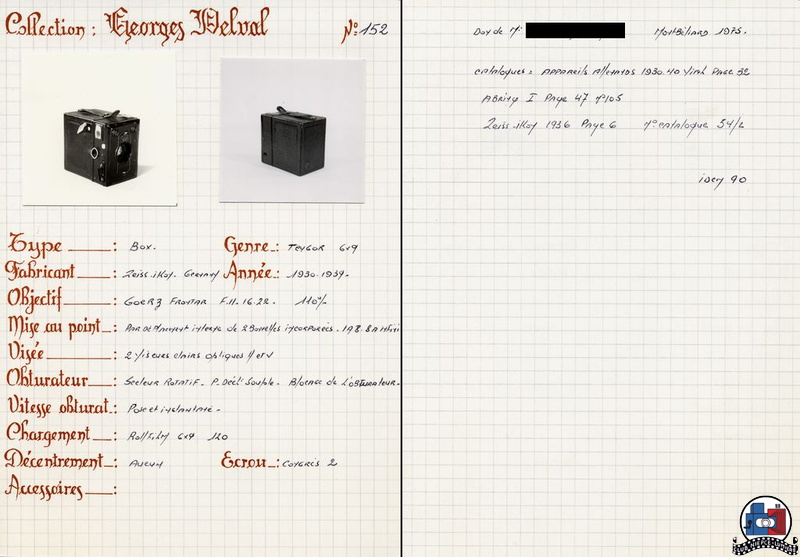 Collection : Georges Delval N°:152
Type : Box.
Genre : TENGOR 6x9
Fabricant : Zeiss.iKoN. GERMANY
Année : 1930.1939.
Objectif : GOERZ FRONTAR F.11.16.22. 110%
Mise au point : PAR DÉPLACEMENT interne de 2 BONNETTES incorporées. 1 à 8.
Visée : 2 Viseurs clairs obliques H et V
Obturateur : Secteur ROTATIF. P. Décl: Souple. Blocage de L'OBTURATEUR.
Vitesse obturat. : Pose et instantané.
Chargement : Rollfilm 6x9 120
Décentrement : AUCUN
Ecrou : CONGRÈS 2
Accessoires :
Don de Mr MONTBÉLIARD 1975.
CATALOGUES : APPAREILS ALLEMANDS 1930.40 Vial PAGE 32
ABRING I PAGE 47 N°105
Zeiss.iKoN 1936 PAGE 6 N° CATALOGUE 54/2
iDEM 90